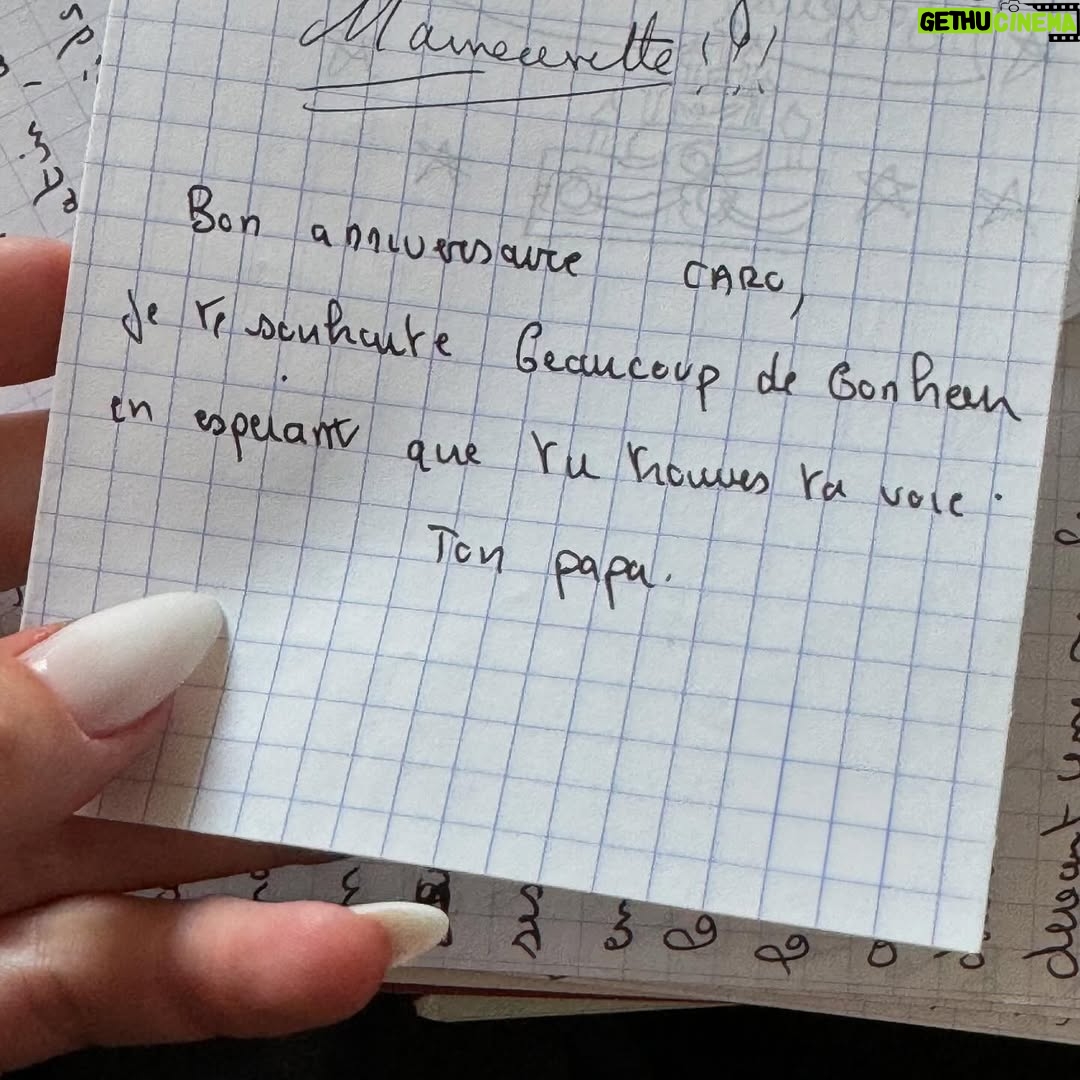 GETHUCINEMA
Bon anniversaire CARO,
Je te souhaite Beaucoup de Bonheur
en esperant que tu trouves ta voie.
Ton papa.
devant une